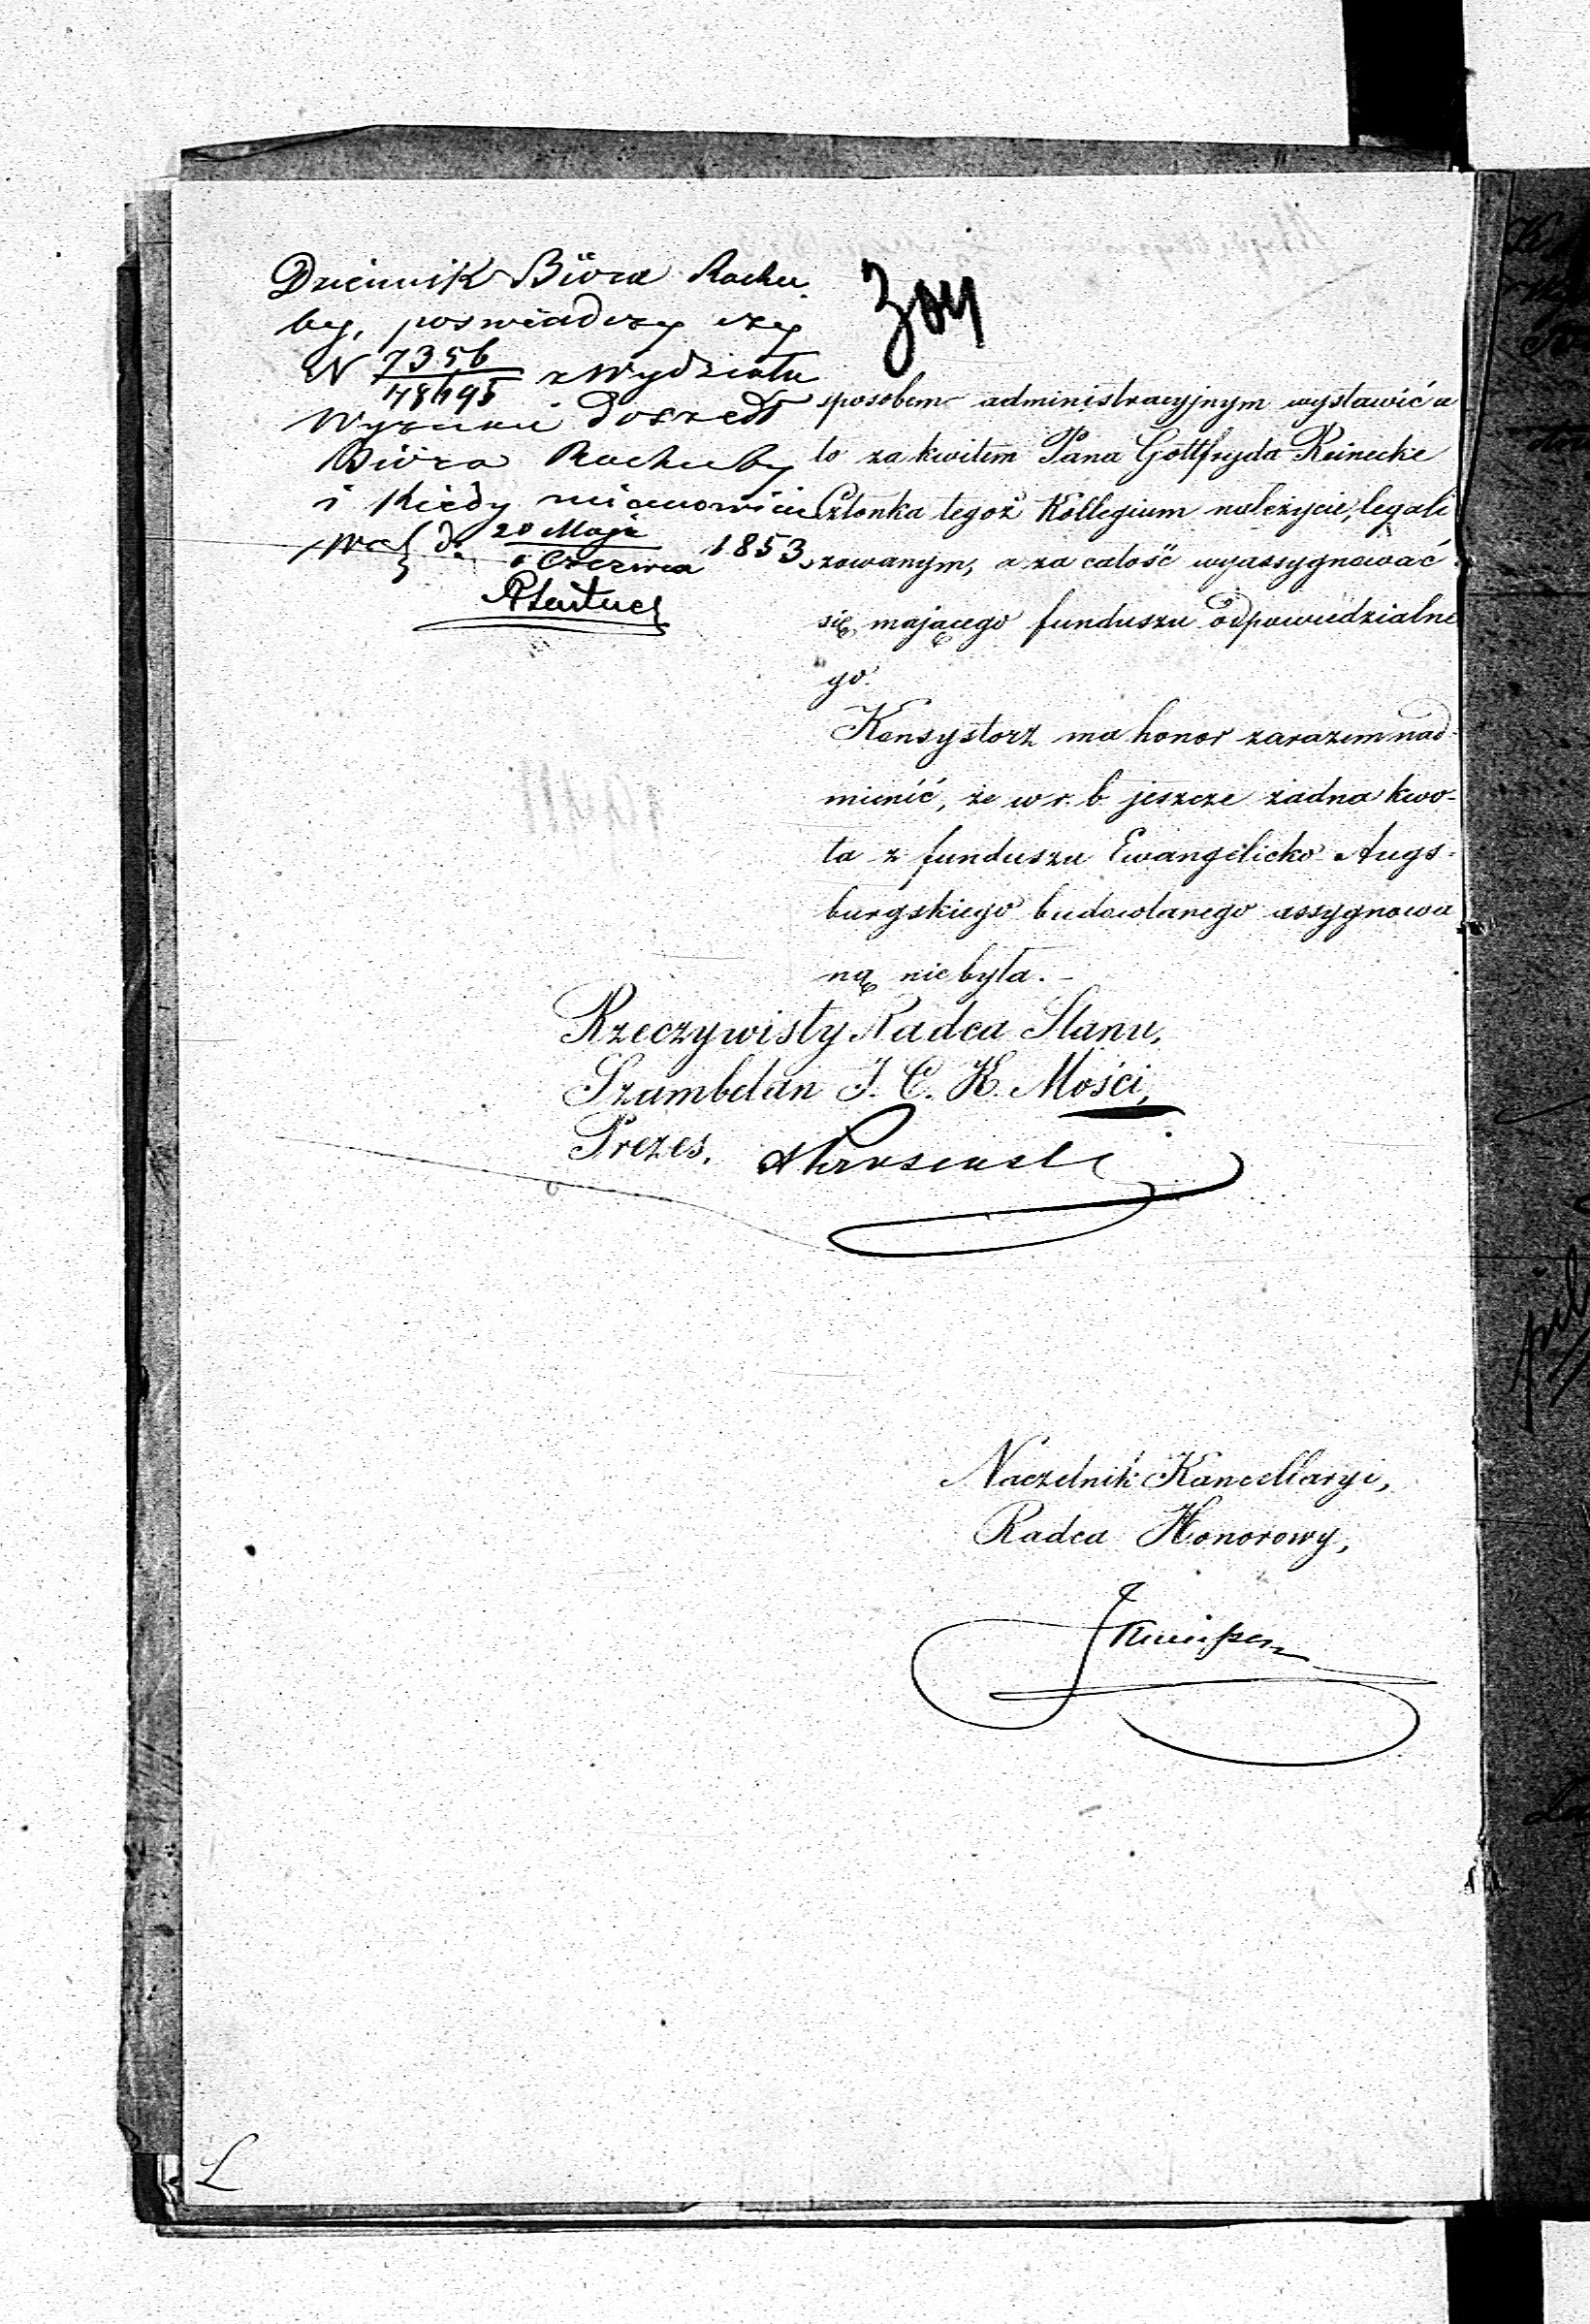 Dziennik Biura Rachu-
by, poświadczy czy
N 7356/48495 z Wydziału
Wyznań doszedł
Biura Rachuby
i kiedy mianowicie
d. 20 Maja/1 Czerwca 1853
sposobem administracyjnym wystawić a
to za kwitem Pana Gottfryda Reinecke
Członka tegoż Kollegium należycie, legali
zowanym, a za całość wyassygnować
się mającego funduszu odpowiedzialne
go.
Konsystorz ma honor zarazem nad-
mienić, że w r. b. jeszcze żadna kwo-
ta z funduszu Ewangelicko Augs-
burgskiego budowlanego assygnowa
ną nie była. –
Rzeczywisty Radca Stanu,
Szambelan J. C. K. Mości,
Prezes.
Naczelnik Kancellaryi,
Radca Honorowy,
L